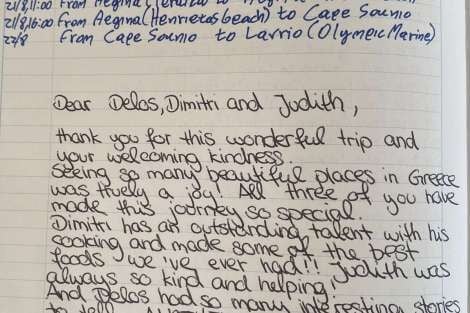 21/8, 11:00 from Aegina
21/8, 16:00 from Aegina (Henrietas beach) to Cape Sounio
22/8 from Cape Sounio to Lavrio (Olympic Marine)
Dear Delos, Dimitri and Judith,
thank you for this wonderful trip and
your welcoming kindness.
Seeing so many beautiful places in Greece
was truely a joy! All three of you have
made this journey so special.
Dimitri has an outstanding talent with his
cooking and made some of the best
foods we 've ever had!! Judith was
always so kind and helping!
And Delos had so many interesting stories
to tell.